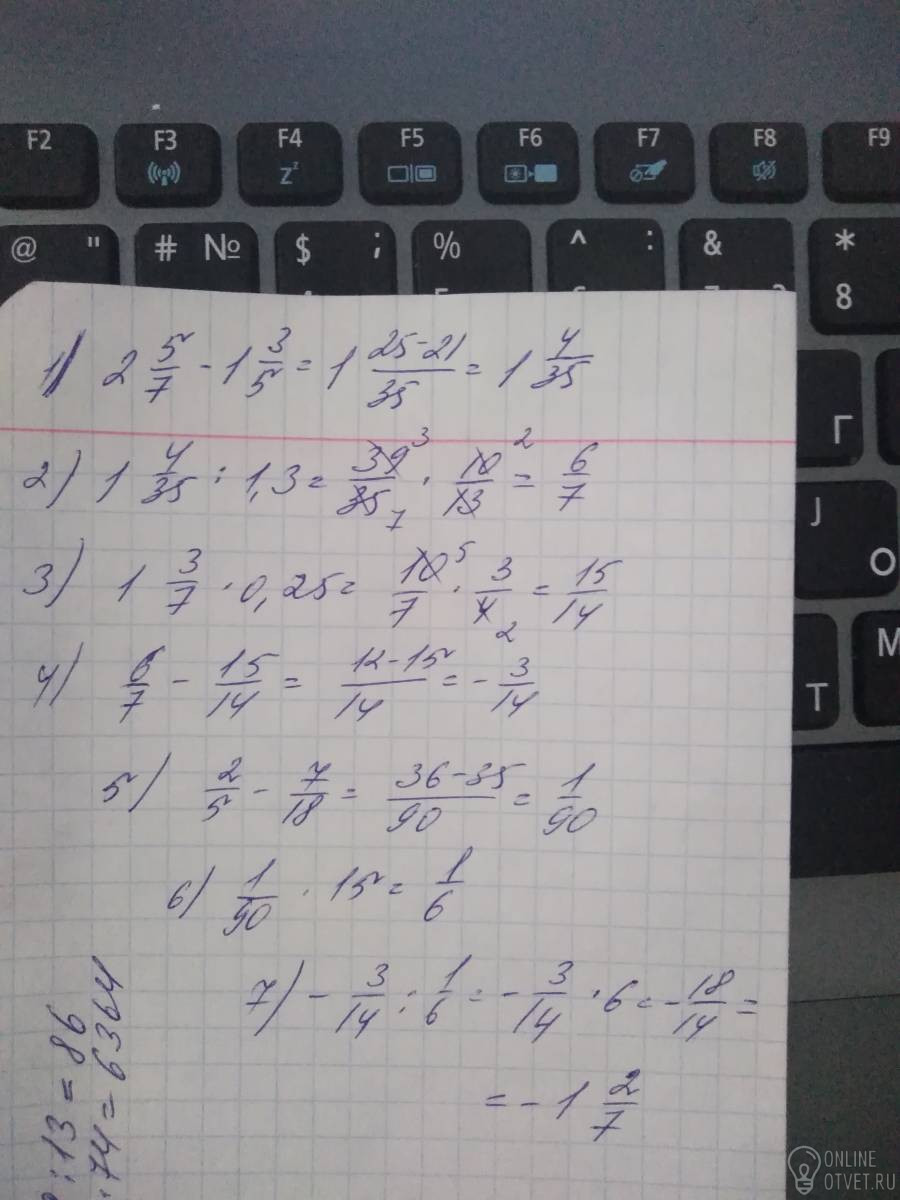 F2 F3 F4 F5 F6 F7 F8 F9
Zz
@ " # № $ ; % ^ : & *
8
Г
J
О
Т
М
1) 2 5/7 - 1 3/5 = 1 25-21/35 = 1 4/35
2) 1 4/35 : 1,3 = 39 3/35 7 · 10 2/13 = 6/7
3) 1 3/7 · 0,25 = 10 5/7 · 3/4 2 = 15/14
4) 6/7 - 15/14 = 12-15/14 = - 3/14
5) 2/5 - 7/18 = 36-35/90 = 1/90
6) 1/90 · 15 = 1/6
7) - 3/14 : 1/6 = - 3/14 · 6 = - 18/14 =
= - 1 2/7
:13 = 86
:74 = 6364
ONLINE
OTVET.RU